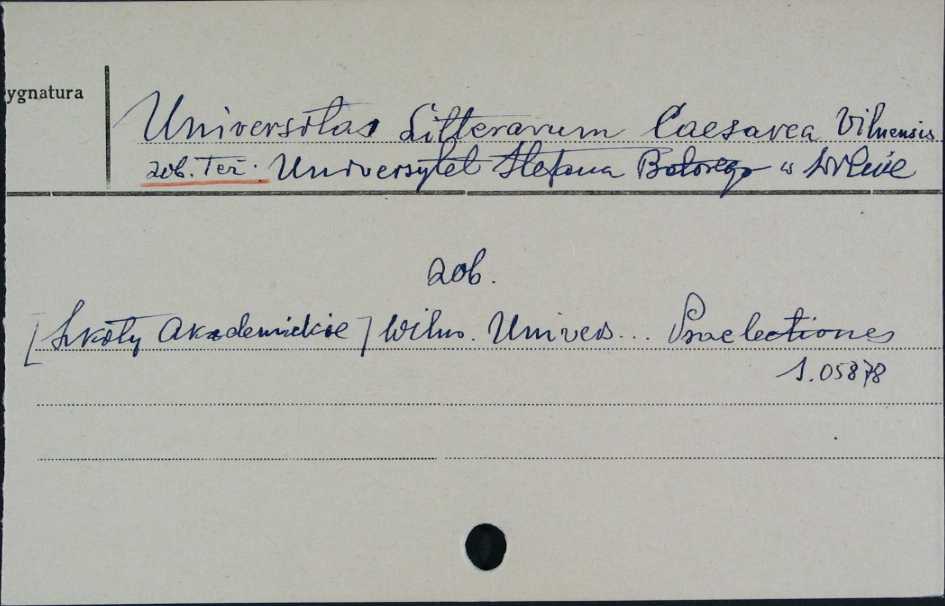 ygnatura
Universitas Litterarum Caesarea Vilnensis
zob. Też. Uniwersytet Stefana Batorego w Wilnie
zob.
[Szkoły Akademickie] Wilno. Univers... Praelectiones
1.05878